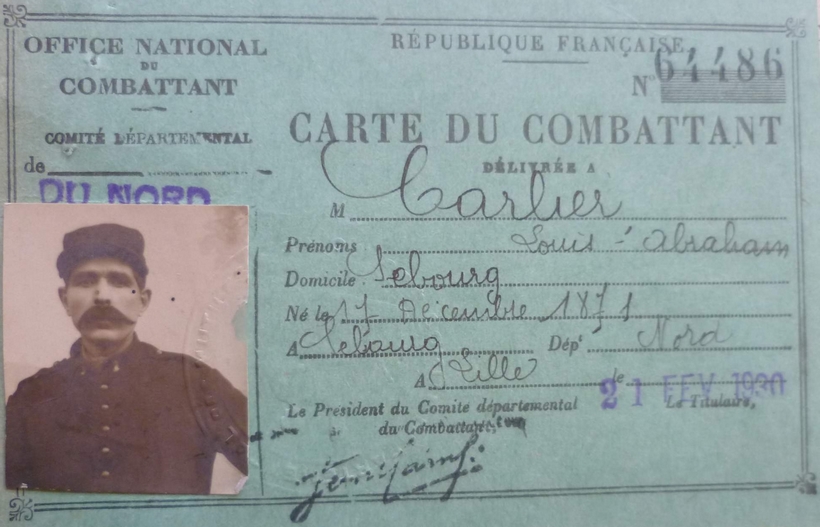 OFFICE NATIONAL
DU
COMBATTANT
COMITÉ DÉPARTEMENTAL
de
DU NORD
RÉPUBLIQUE FRANÇAISE
N° 64486
CARTE DU COMBATTANT
DÉLIVRÉE A
M Carlier
Prénoms Louis - Abraham
Domicile Sebourg
Né le 17 Décembre 1871
A Sebourg Dépt Nord
A Lille le 21 FEV 1930
Le President du Comité départemental Le Titulaire,
du Combattant,